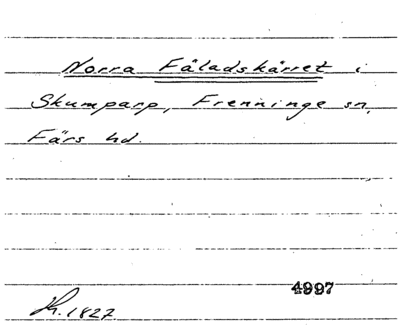 Norra Fåladskärret i
Skumparp, Frenninge sn,
Färs hd.
4997
Kr. 1827.